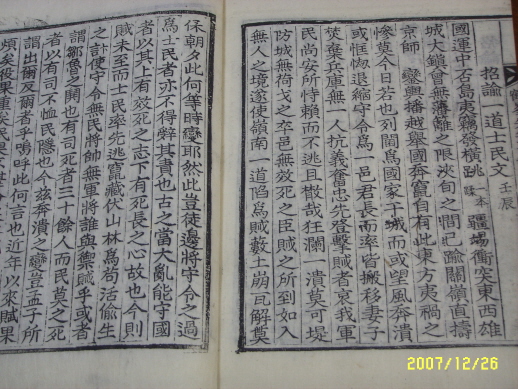 招諭一道士民文 壬辰
國運中否島夷竊發橫跳一本疆場衝突東西雄
城大鎭曾無藩籬之限浹旬之間已踰關嶺直擣
京師 鑾輿播越擧國奔竄自有此東方夷禍之
慘莫今日若也列閫爲國家干城而或望風奔潰
或恇㥘退縮守令爲一邑君長而率皆搬移妻子
焚棄兵庫無一人抗義奮忠先登擊賊者哀我軍
民尚安所恃賴而不逃且散哉狂瀾一潰莫可堤
防城無荷戈之卒邑無效死之臣賊之所到如入
無人之境遂使嶺南一道陷爲賊藪土崩瓦解莫
保朝夕此何等時變耶然此豈徒邊將守令之過
爲士民者亦不得辭其責也古之當大亂能守國
者以其上有效死之志下有死長之心故也今則
賊未至而士民率先逃竄藏伏山林爲苟活偸生
之計使守令無民將帥無軍將誰與禦賊乎或者
謂鄒魯之鬨也有司死者三十餘人而民莫之死
者以有司不恤民隱也今玆奔潰之變豈孟子所
謂出爾反爾者乎嗚呼此何言也近年以來賦果
煩矣役果重矣民果
2007/12/26